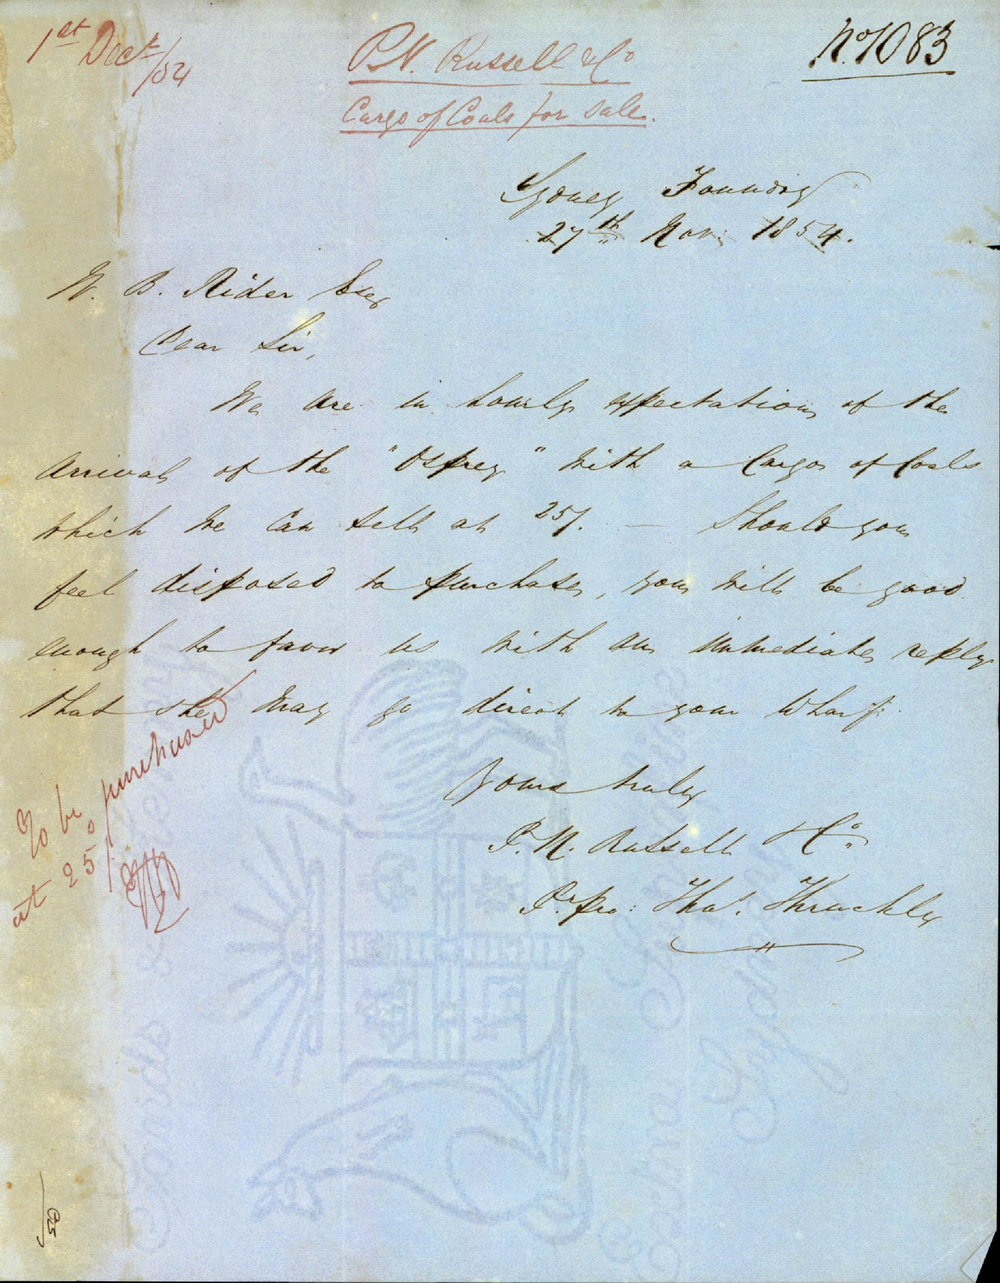 1st Decr /54
P.N. Russell & Co
Cargo of Coals for sale.
No 1083
Sydney Foundry
27th Nov. 1854.
W. B. Rider Esq
Dear Sir,
We are in hourly expectations of the
arrival of the "Osprey" with a Cargo of Coals
which we can sell at 25/. — Should you
feel disposed to purchase, you will be good
enough to favor us with an immediate reply
that she may go direct to your Wharf.
Yours truly
P. N. Russell & Co.
Pr. pro: Thos.
To be purchased
at 25/0